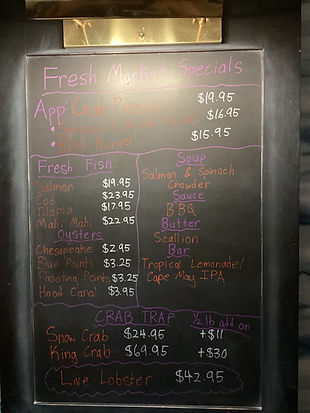 Fresh Market Specials
App: Crab $19.95
• $16.95
• Burger $15.95
Fresh Fish
Salmon $19.95
Cod $23.95
Tilapia $17.95
Mahi Mahi $22.95
Oysters
Chesepeake $2.95
Blue Points $3.25
Shooting Points $3.25
Hood Canal $3.95
Soup
Salmon & Spinach
Chowder
Sauce
BBQ
Butter
Scallion
Bar
Tropical Lemonade/
Cape May IPA
CRAB TRAP ½ lb add on
Snow Crab $24.95 +$11
King Crab $69.95 +$30
Live Lobster $42.95